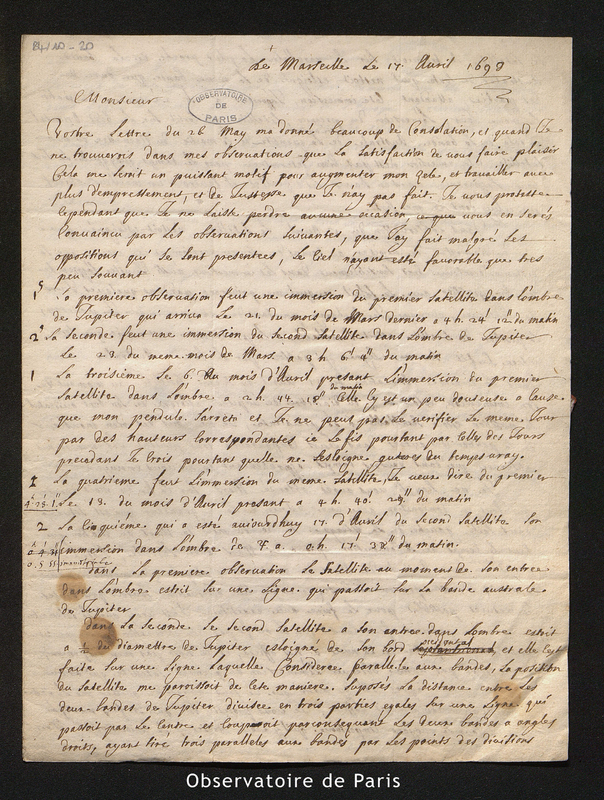 84/10-20
De Marseille Le 17 Avril 1698
OBSERVATOIRE
DE
PARIS
Monsieur
Vostre Lettre du 26 May ma donné beaucoup de Consolation, et quand Je
ne trouverois dans mes observations que La Satisfaction de vous faire plaisir
Cela me seroit un puissant motif pour augmenter mon Zele, et travailler avec
plus dempressement, et de Justesse que Je nay pas fait. Je vous proteste
Cependant que Je ne Laisse perdre aucune occasion, vous en serés
Convaincu par Les observations Suivantes, que Jay fait malgré Les
oppositions qui se sont presentees, Le Ciel nayant esté favorable que tres
peu souvant
1 La premiere observation feut une immersion du premier Satellite dans Lombre
de Jupiter qui arriva Le 21 du mois de Mars dernier a 4 h. 24' 12" du matin
2 La Seconde feut une immersion du Second Satellite dans Lombre de Jupiter
Le 23 du meme mois de Mars a 3 h 6' du matin
1 La troisième Le 6 du mois d'Avril presant Limmersion du premier
du matin
Satellite dans Lombre a 2 h. 44. 18" Elle Cy est un peu douteuse a Cause
que mon pendule Sarreta et Je ne peut pas Le verifier Le meme Jour
par des hauteurs Correspondantes ie Le fis pourtant par Celles des Jours
precedans Je Crois pourtant quelle ne Sesloigne guieres du temps vray.
1 La quatrieme feut Limmersion du meme Satellite, Je veux dire du premier
Le 13. du mois d'Avril presant a 4 h. 40' du matin
2 La Cinquiéme qui a esté auiourdhuy 17 d'Avril du Second Satellite Son
immersion dans Lombre a 0 h. 17' du matin.
dans La premiere observation Le Satellite au moment de Son entree
dans Lombre estoit Sur une Ligne qui passoit Sur La bande australe
de Jupiter
dans La Seconde Le Second Satellite a Son entree dans Lombre estoit
a ½ de diametre de Jupiter esloigné de Son bord et elle Cest
faite Sur une Ligne Laquelle Consideree parallele aux bandes, La position
du Satellite me paroissoit de Cete maniere. Suposés La distance entre Les
deux bandes de Jupiter divisee en trois parties egales Sur une Ligne qui
passoit par Le Centre et Coupoit parconsequant Les deux bandes a angles
droits, ayant tiré trois paralleles aux bandes par Les points des divisions
Observatoire de Paris